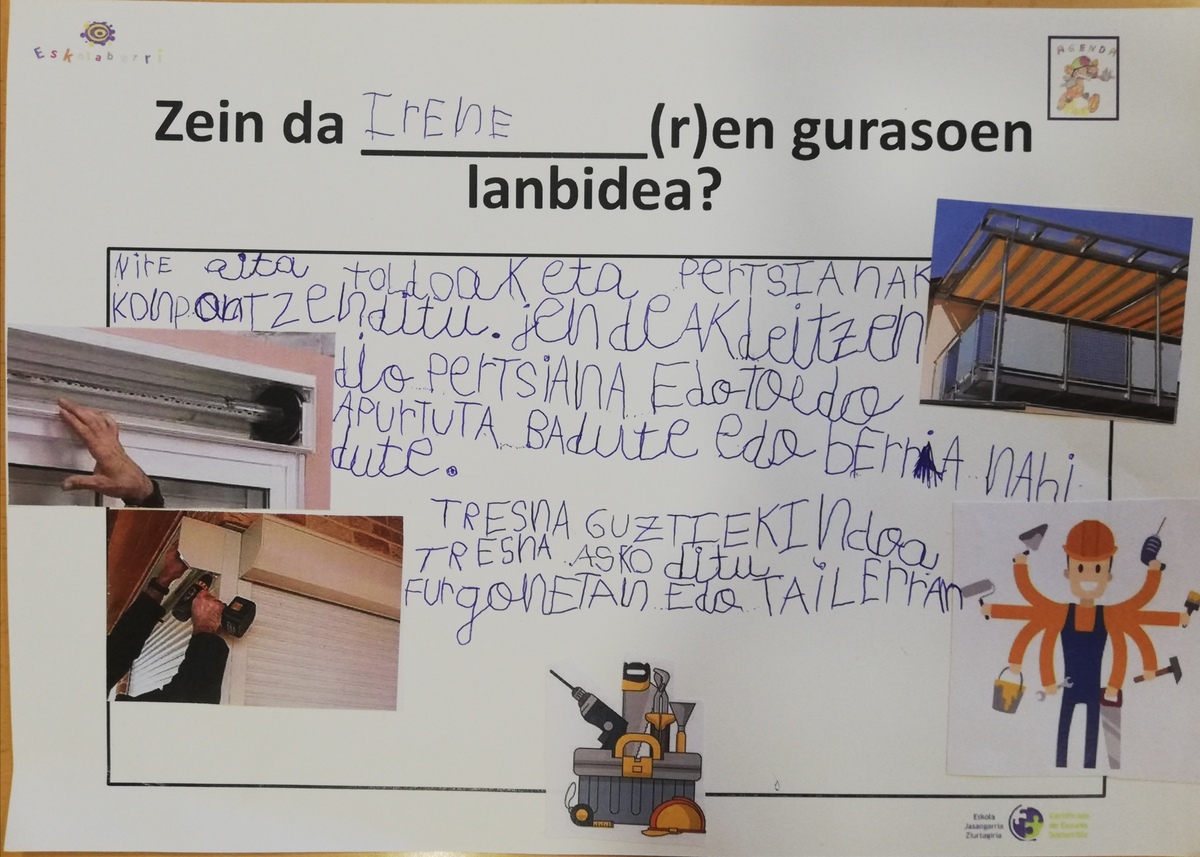 Eskolabarri
AGENDA
Zein da IrENE (r)en gurasoen
lanbidea?
NirE aita toldoaK eta PERTSIANAK
KONPONTZEN ditu. jendEAK deitzen
dio PERTSiANA Edo TOLdo
APURTUTA BAdute edo bErriA NAhi
dute.
TRESNA GUZTIEKIN doa
TRESNA ASKO ditu
FURgONETAN Edo TAiLErrAN
Eskola
Jasangarria
Ziurtagiria
Certificado
de Escuela
Sostenible